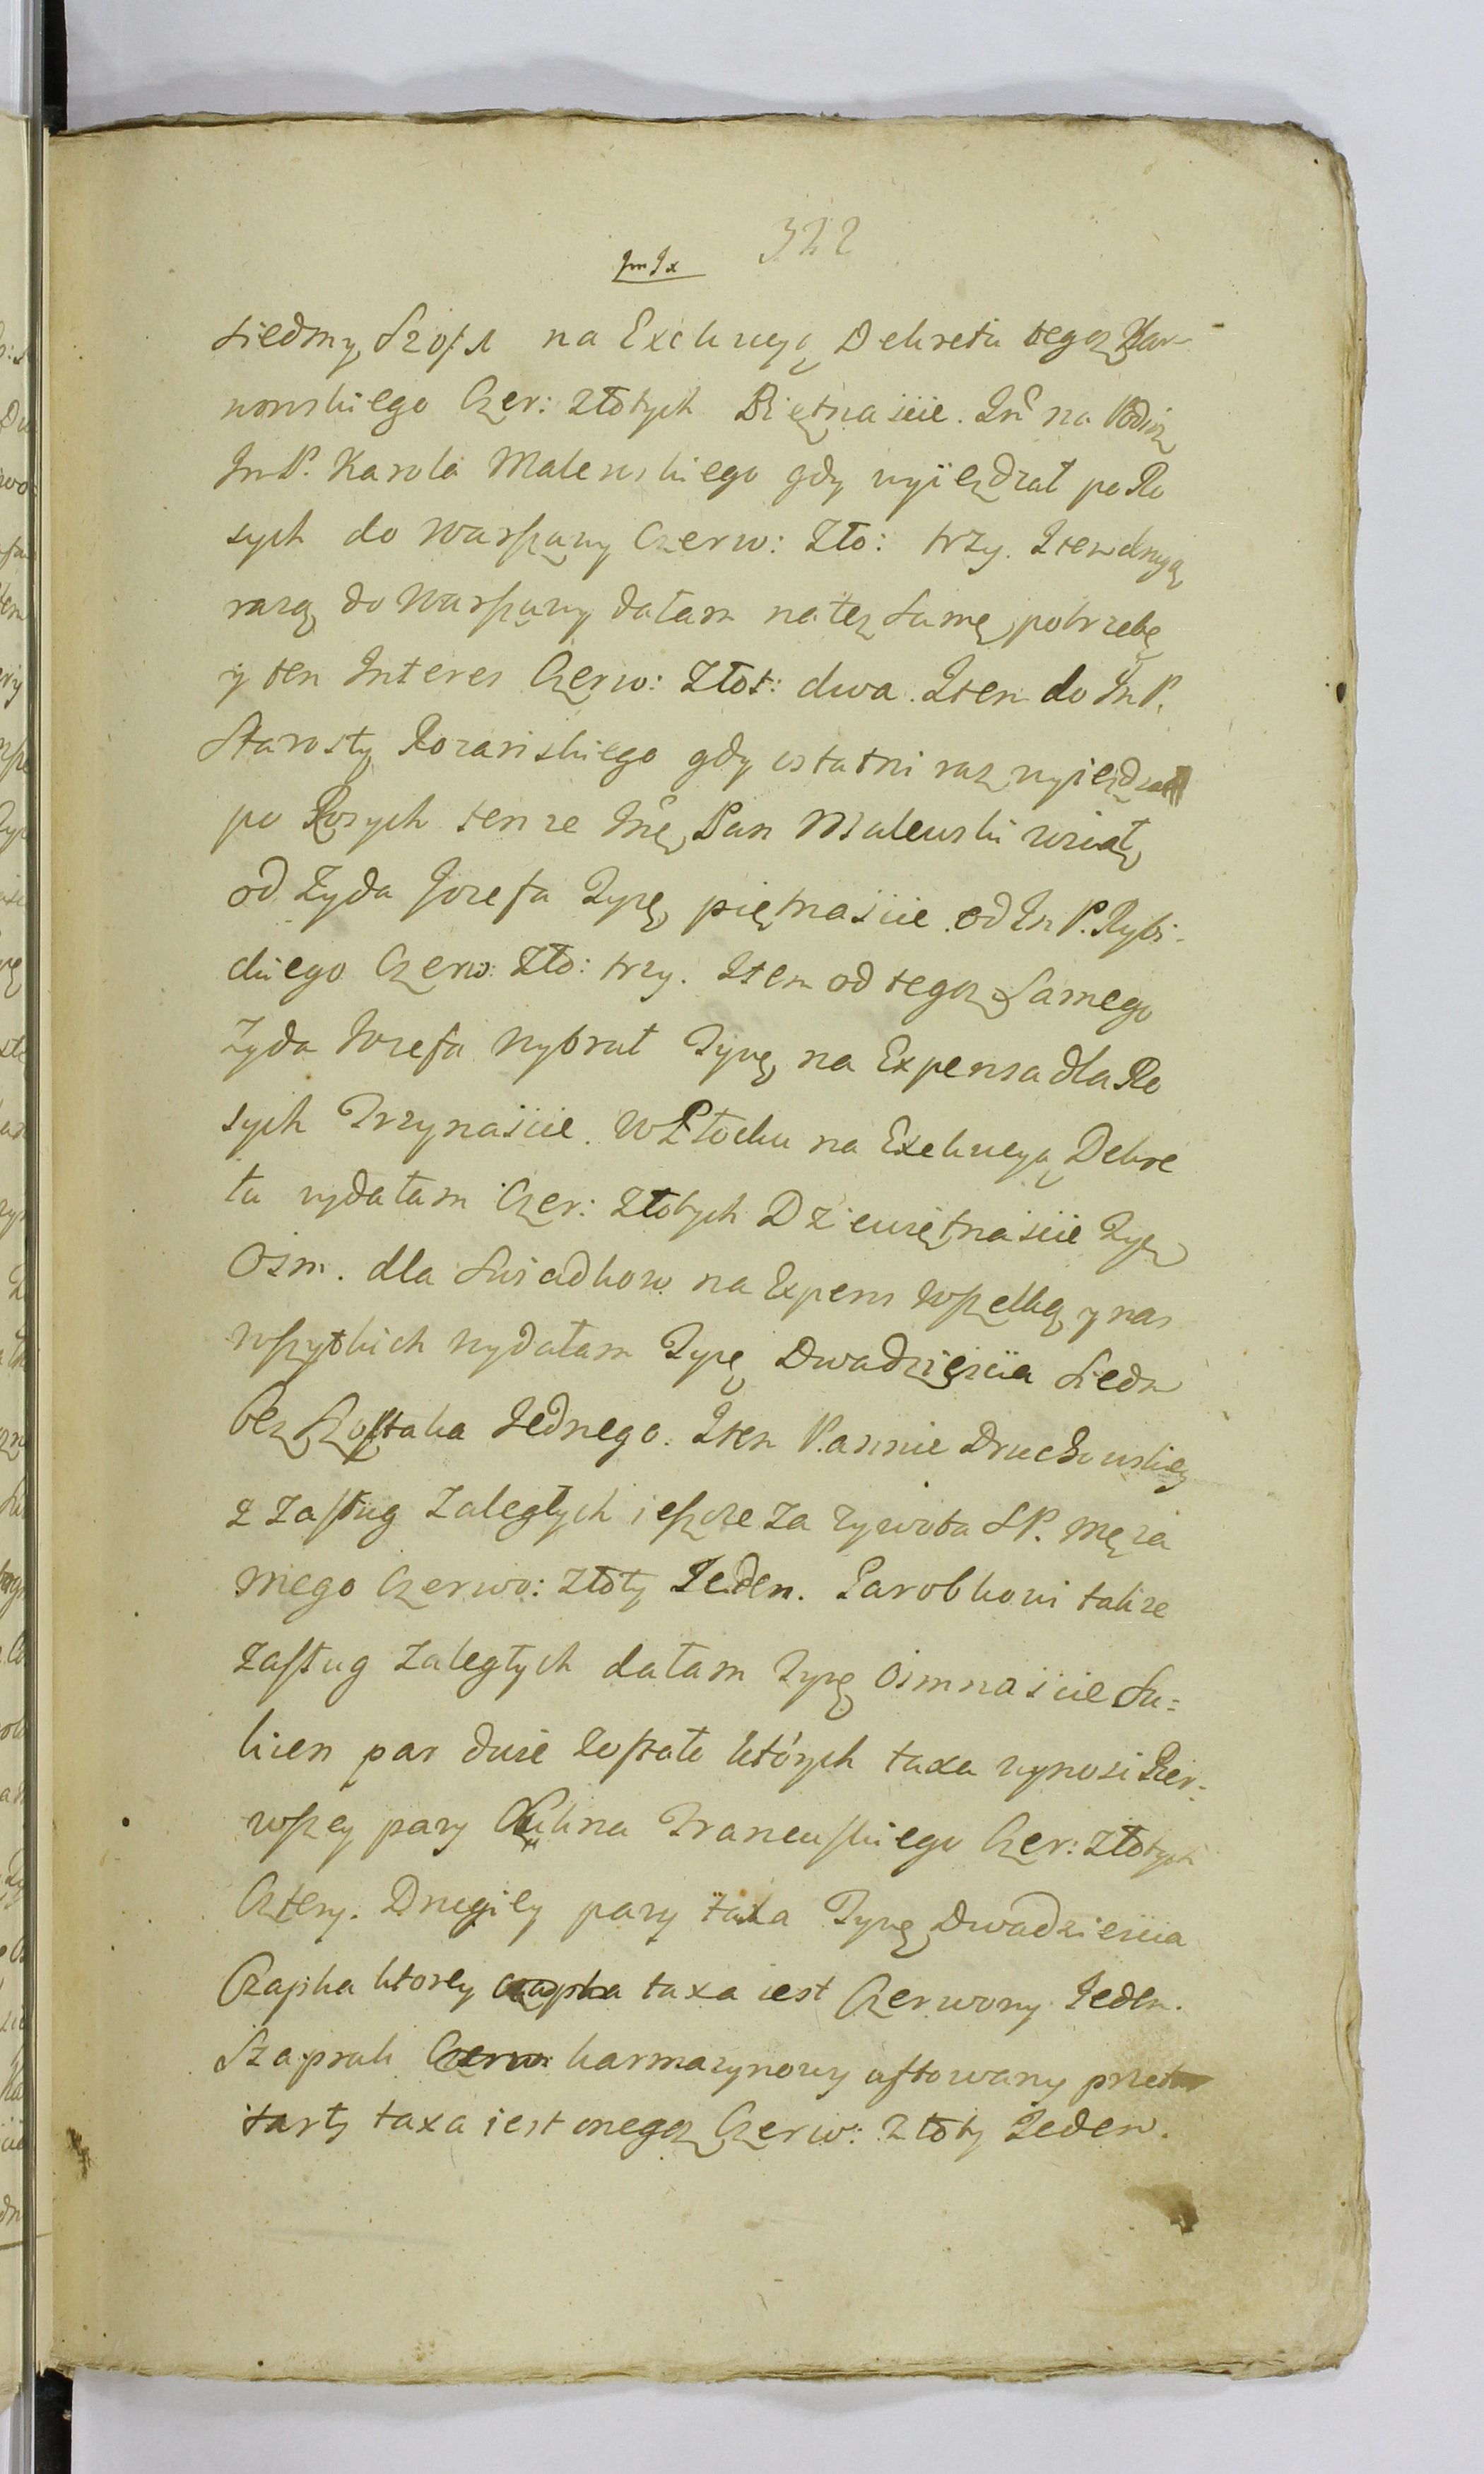 322
siedmy Szos: 1 na Exekucyą Dekretu tegoz Kar-
nowskiego Czer: złotych Piętnascie. It na
Im P. Karola Malewskiego gdy wyiezdzał po Ro
sych do Warszawy Czerw: Zło: trzy. Item drugą
razą do Warszawy dałam na tęz samę potrzebę
y ten Interes Czerw: Złot: dwa. Item do Im P.
Starosty Rozanskiego gdy ostatni raz wyiezdzał
po Rosych tenze Imę Pan Malewski wziął
od Zyda Jozefa Tynę piętnascie od Im P. Rybi-
ckiego Czerw: Zło: trzy. Item od tegoz samego
Zyda Jozefa wybrał Tynę na Expensa dla Ro
sych Trzynascie. W Płocku na Exekucyą Dekre
tu wydałam Czer: Złotych Dziewiętnascie Tynę
Osm. dla Swiadkow na Expens wszelką y nas
wszytkich wydałam Tynę Dwadziescia siedm
bez szostaka Jednego. Item Pannie Druchowskiey
z zasług zaległych ieszcze za zywota SP. męza
mego Czerwo: złoty Jeden. Parobkowi takze
zasług zaległych dałam Tynę osmnascie Su=
kien par dwie zostało których taxa wynosi Pier-
wszey pary Sukna Francuskiego Czer: Złotych
Cztery. Drugiey pary taxa Tynę Dwadziescia
Czapka ktorey czapka taxa iest Czerwony Jeden.
Szaprak Czerw: karmazynowy aftowany przetar
tarty taxa iest onegoz Czerw: złoty Jeden.